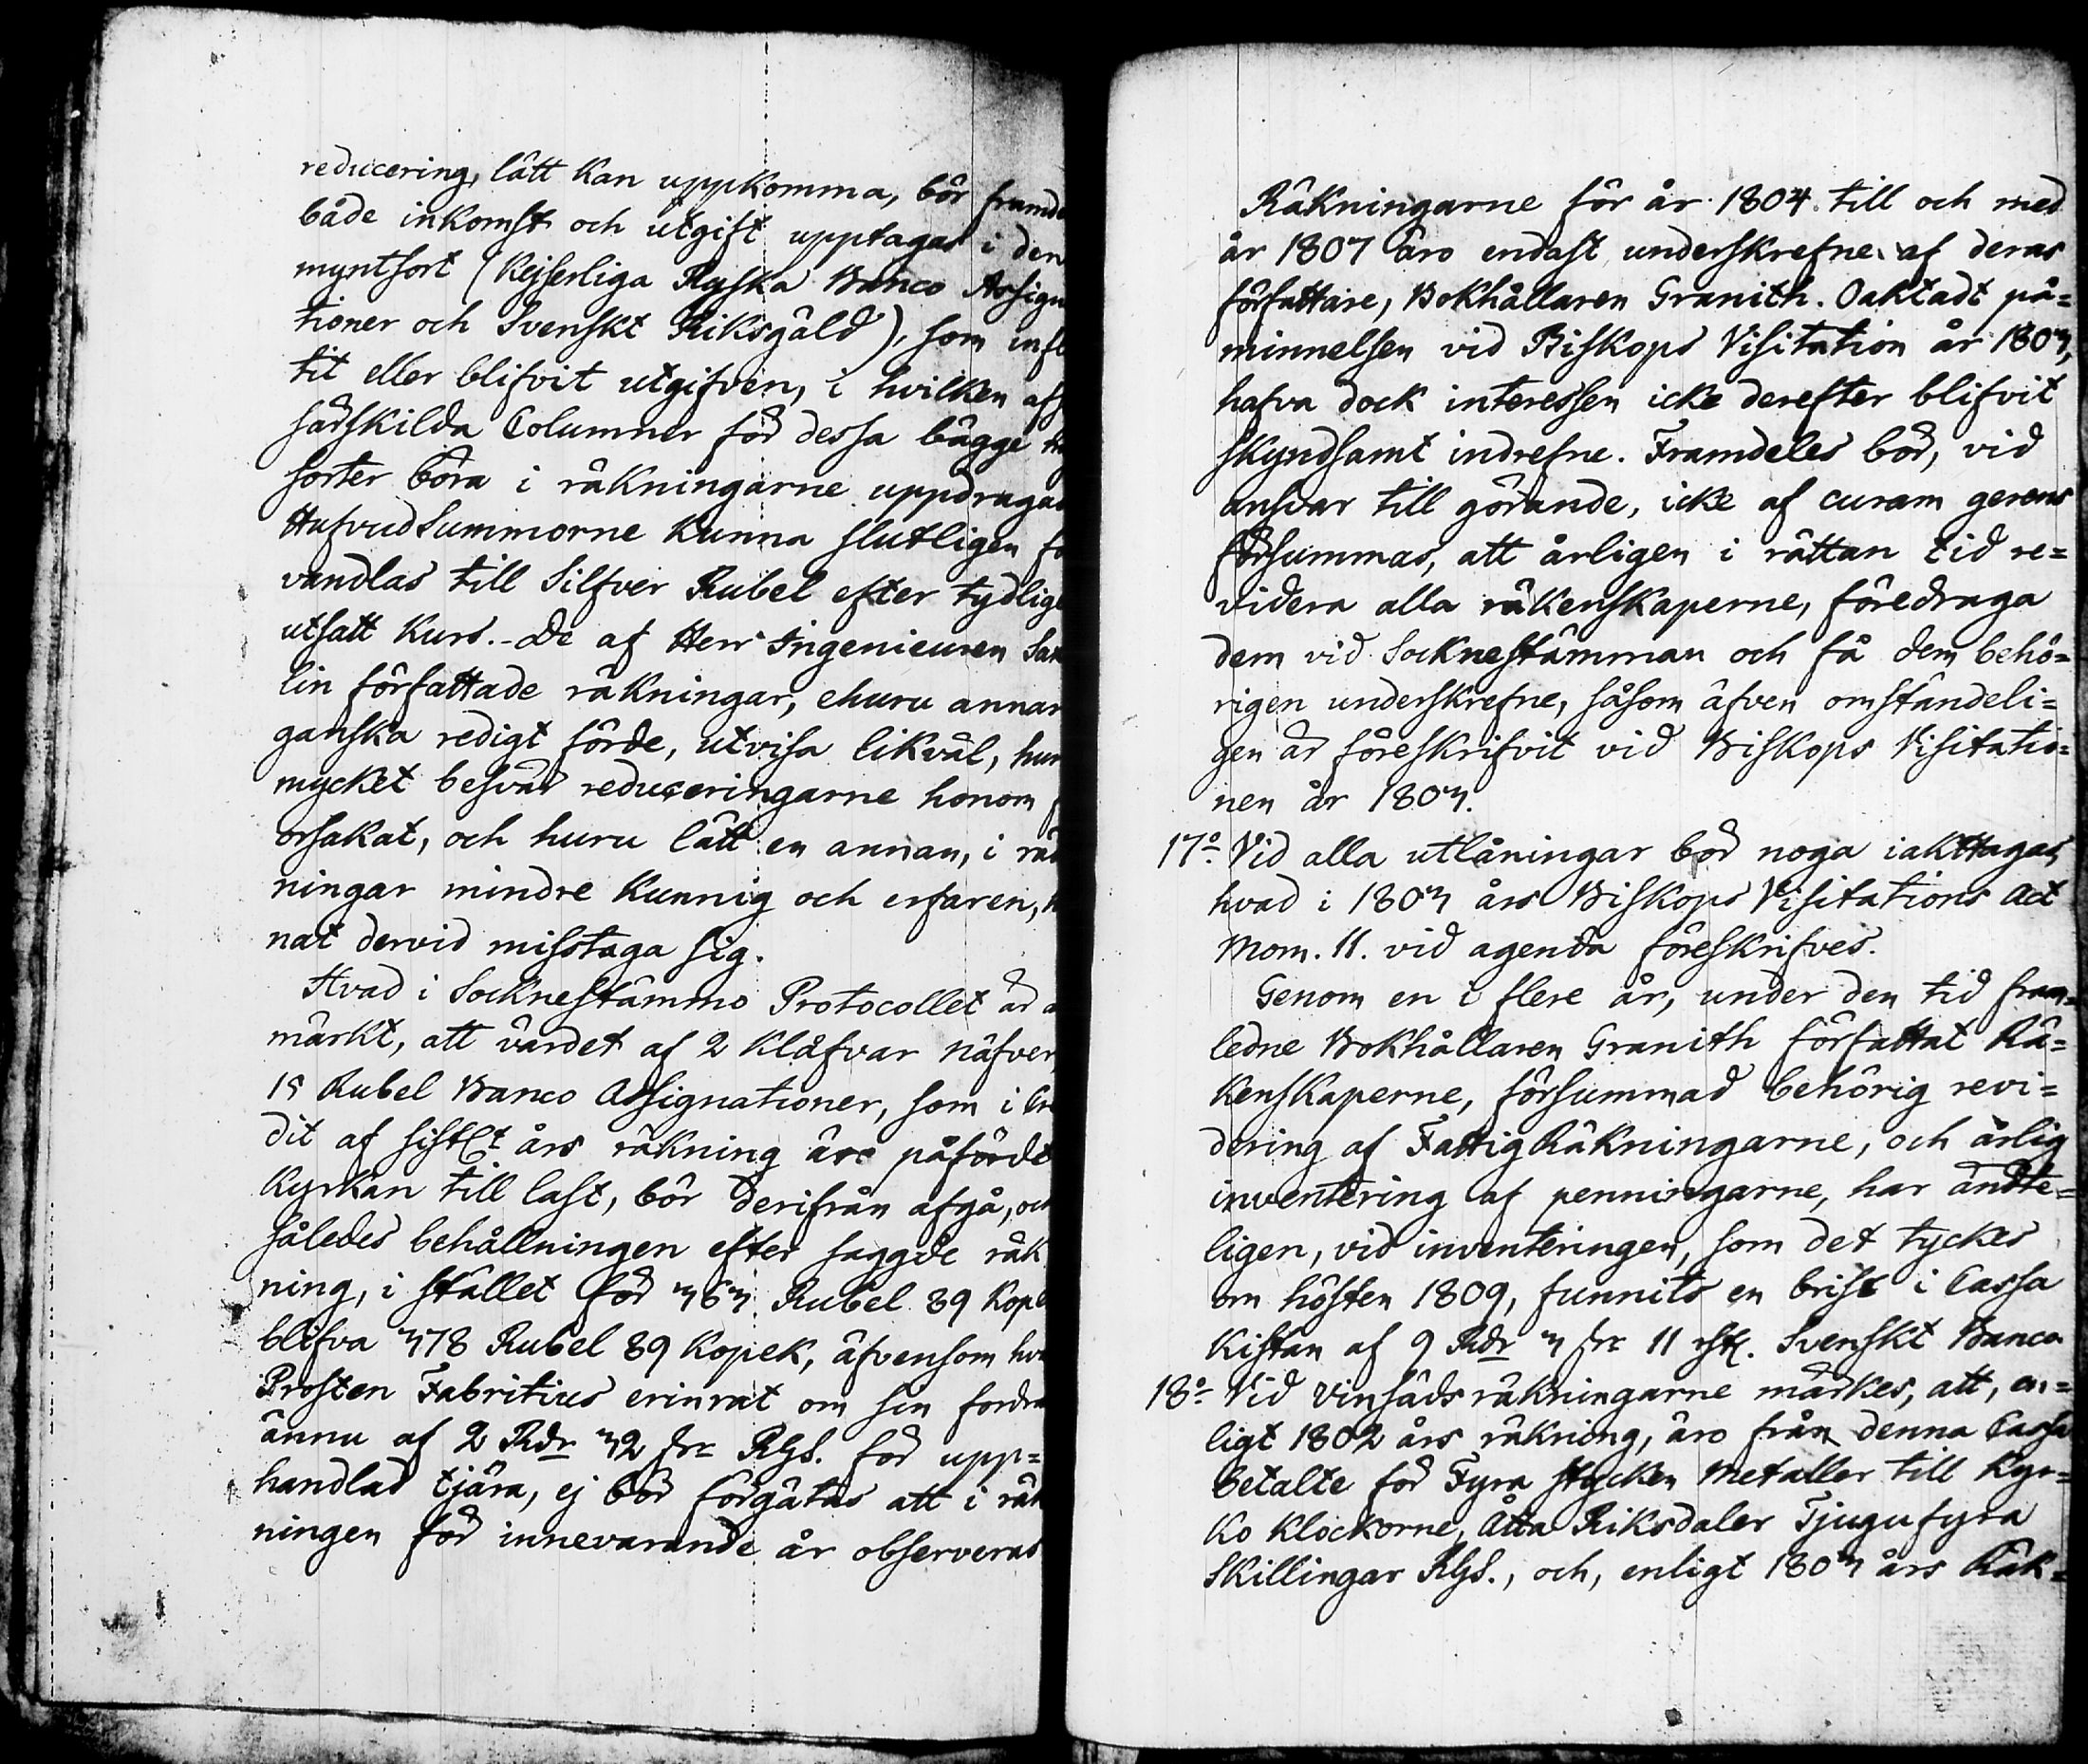 reducering, lätt kan uppkomma, bör framde
både inkomst och utgift upptagas i den
myntsort (Kejserliga Ryska Banco Assigna
tioner och Svenskt Riksgäld), som infl
tit eller blifvit utgifven, i hvilken afs
särskilda Columner för dessa bägge
sorter böra i räkningarne uppdragas
Hufvudsummorne kunna slutligen för
vandlas till Silfver Rubel efter tydlige
utsatt Kurs. - De af Herr Ingenieuren
lin författade räkningar, ehuru annar
ganska redigt förde, utvisa likväl, huru
mycket besvär reduceringarne honom
orsakat, och huru lätt en annan, i räk
ningar mindre kunnig och erfaren,
nat dervid misstaga sig.
Hvad i Sockneståmmo Protocollet är a
märkt, att värdet af 2 klåfvar näfver,
15 Rubel Banco Assignationer, som i Cre
dit af sistl:t års räkning äro påförde
Kyrkan till last, bör derifrån afgå, och
således behållningen efter saggde räk
ning, i stället för 363 Rubel 89 Kop
blifva 378 Rubel 89 Kopek, äfvensom hva
Prosten Fabritius erinrat om sin fordra
ännu af 2 Rdr 32 sr RGS. för upp=
handlad tjära, ej bör förgätas att i räk
ningen för innevarande år observeras
Räkningarne för år 1804. till och med
år 1807 äro endast underskrefne af deras
författare, Bokhållaren Granith. Oaktadt på=
minnelsen vid Biskops Visitation år 1803,
hafva dock interessen icke derefter blifvit
skyndsamt indrefne. Framdeles bör, vid
ansvar till görande, icke af curam gerens
försummas, att årligen i rättan tid re=
videra alla räkenskaperne, föredraga
dem vid Sockneståmman och få dem behö=
rigen underskrefne, såsom äfven omständeli=
gen är föreskrifvit vid Biskops Visitatio=
nen år 1803.
17:o Vid alla utlåningar bör noga iakttagas,
hvad i 1803 års Biskops Visitations Act
Mom. 11. vid agenda föreskrifves.
Genom en i flere år, under den tid fram=
ledne Bokhållaren Granith författat Rä=
kenskaperne, försummad behörig revi=
dering af Fattig Räkningarne, och årlig
inventering af penningarne, har ändte=
ligen, vid inventeringen, som det tyckes
om hösten 1809, funnits en brist i Cassa
Kistan af 9 Rdr 3 sr 11 rst. Svenskt Banco
18:o Vid vinsäds räkningarne märkes, att, en=
ligt 1802 års räkning, äro från denna Cassa
betalte för Fyra stycken Metaller till Kyr=
ko klockorne, Åtta Riksdaler Tjugufyra
Skillingar RGS., och, enligt 1803 års Räk=